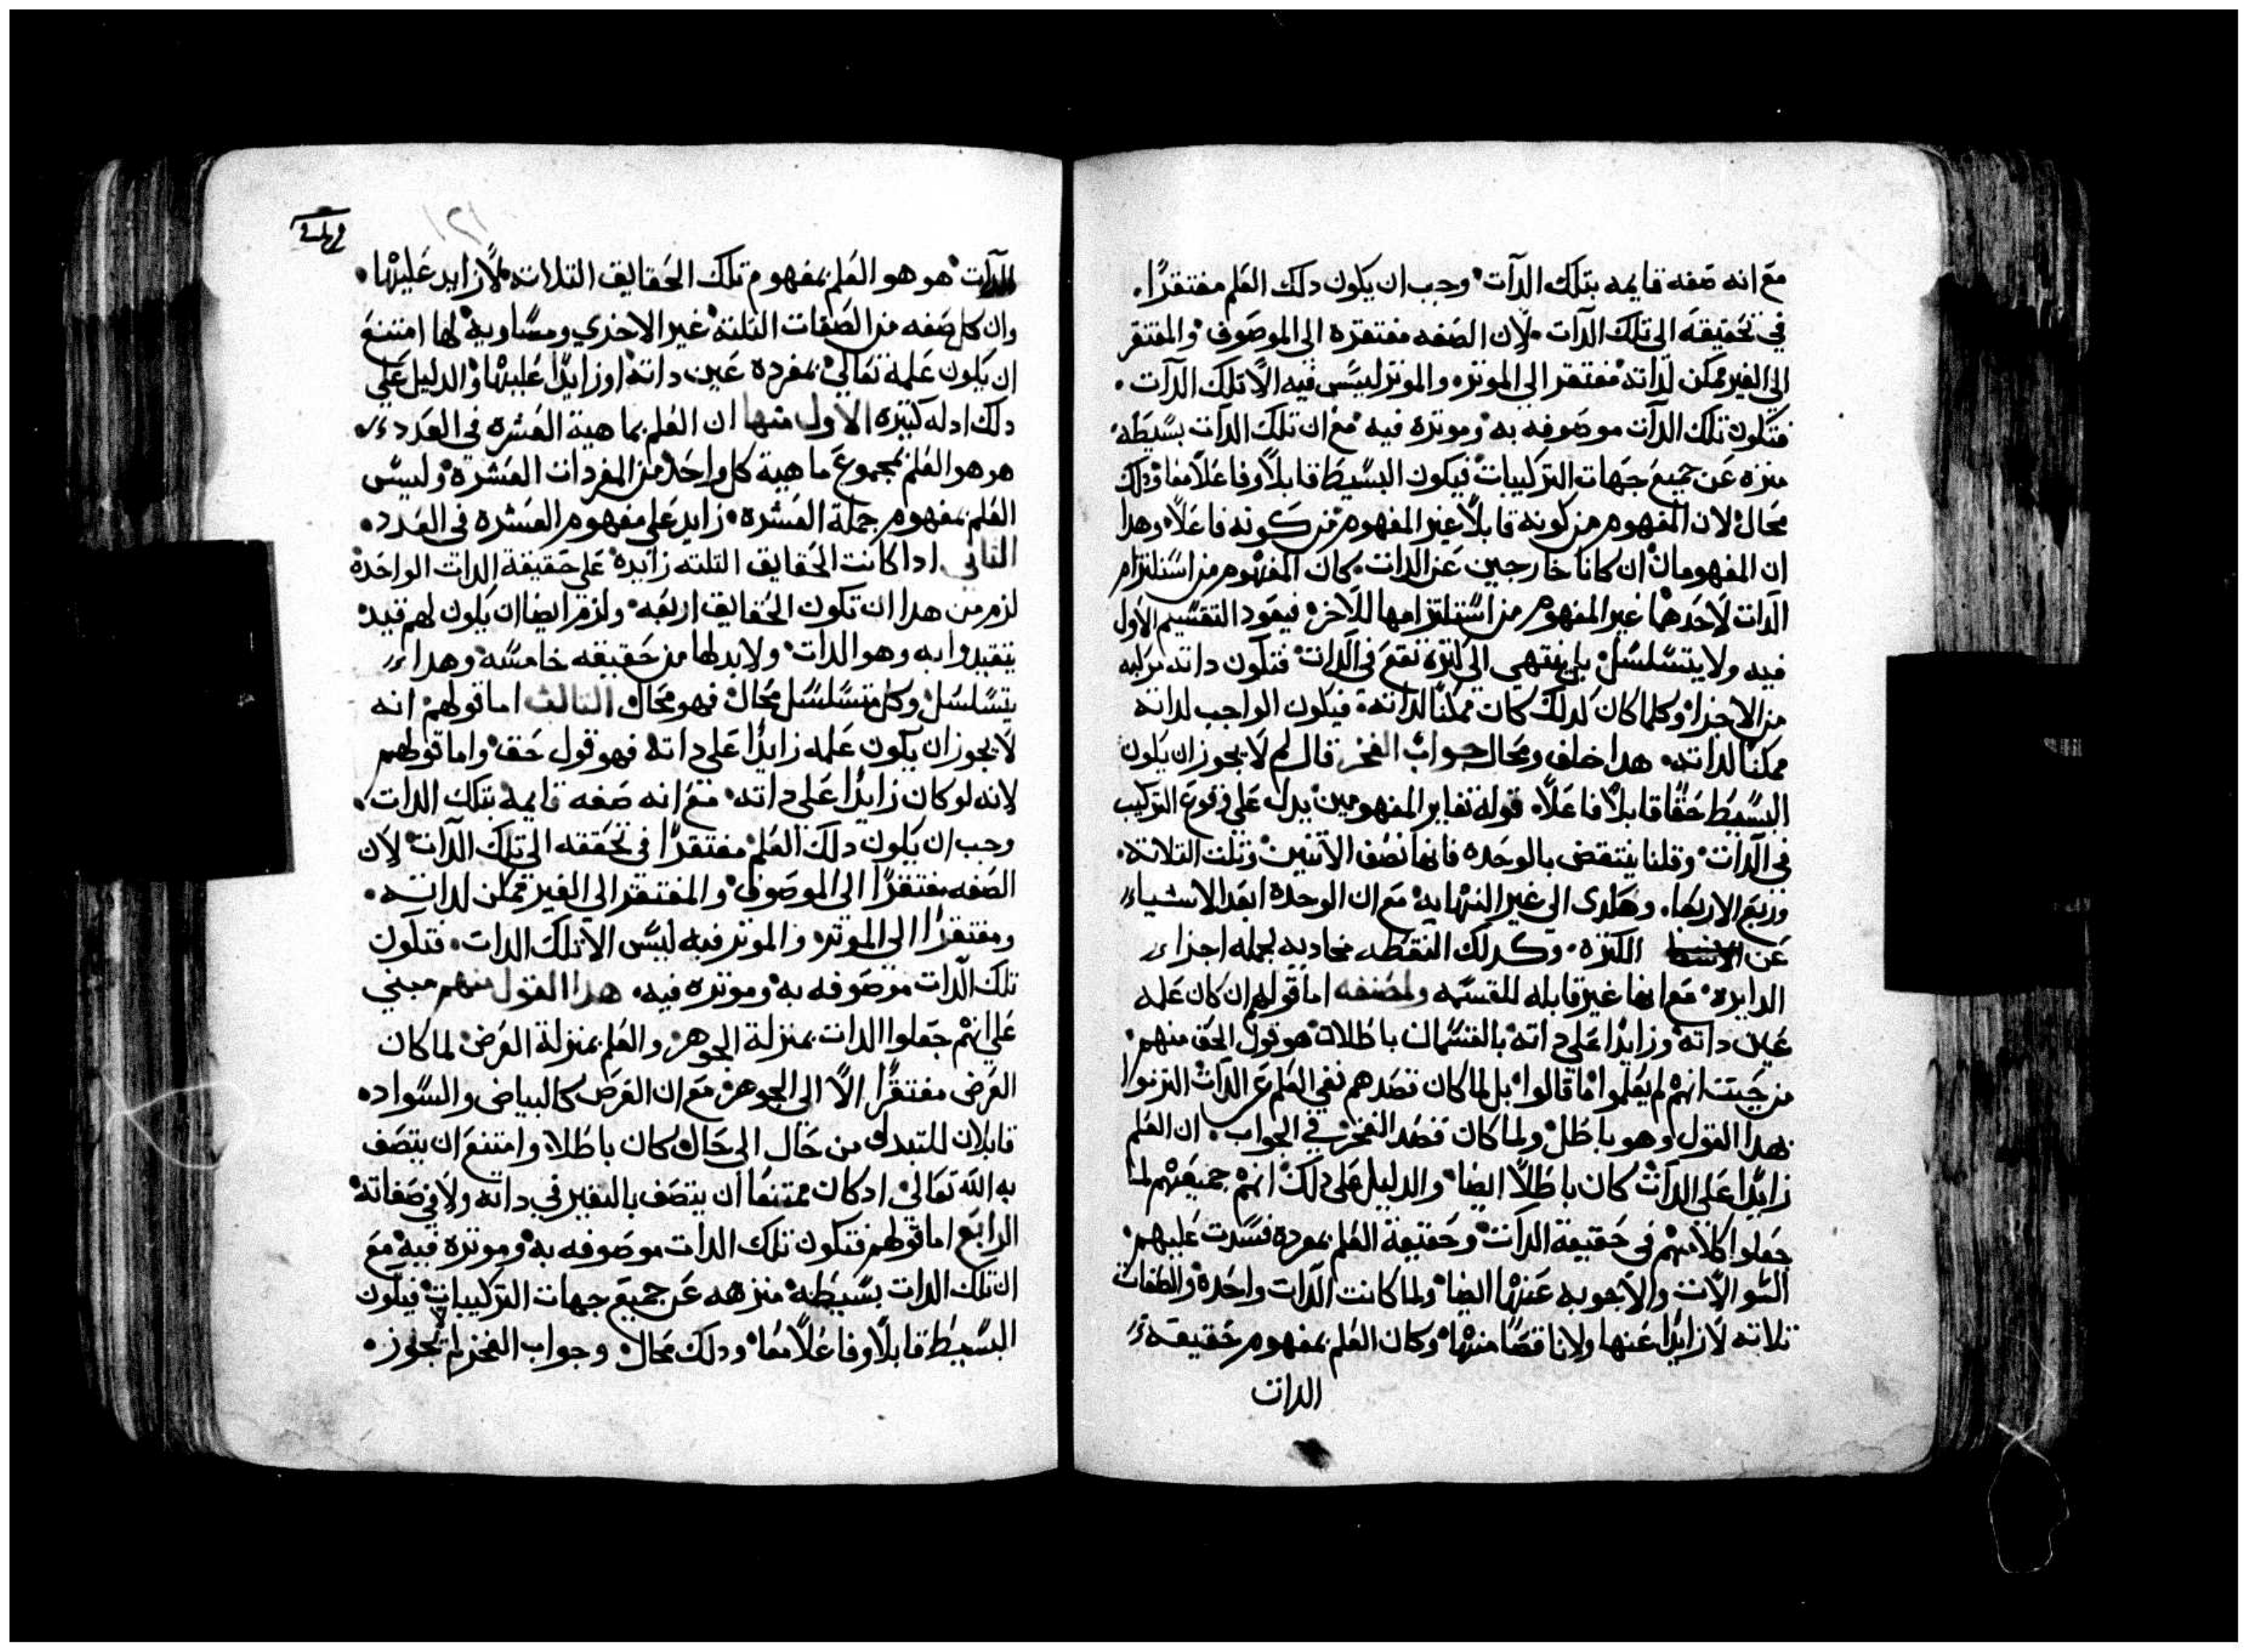 مع انه صفه قايمه بتلك الدآت وجب ان يكون دلك العلم مفتقرًا.
في تحقيقه الى تلك الدآت. لان الصفه مفتقره الى الموصوف والمفتقر
الي الغير ممكن لداته مفتقر الى الموتره والموتر ليس فيه الا تلك الدآت.
فتكون تلك الدآت موصوفه به وموتره فيه مع ان تلك الدات بسيطه
منزه عن جميع جهات التركيبات فيكون البسيط قابلاً وفاعلاً معا ودلك
محال لان المفهوم من كونه قابلاً غير المفهوم من كونه فاعلاً وهدا
ان المفهومان ان كانا خارجين عن الدات. كان المفهوم من استلتزام
الدات لاحدهما غير المفهوم من استلتزامها للاخر فيعود التقسيم الاول
فيه ولا يتسلسل بل ينتهي الى كتره تقع في الدات فتكون داته مركبه
من الاجزا وكلما كان كدلك كان ممكنًا لداته. فيكون الواجب لداته
ممكنًا لداته. هدا خلف ومحال جواب الفخر قال لم لا يجوز ان يكون
البسيط حقًا قابلاً فاعلاً. قوله تغاير المفهومين يدل على وقوع التركيب
في الدآت وقلنا ينتقض بالوحده فانها نصف الاتنين وتلت التلاته.
وربع الاربعا. وهكدى الي غير النهايه مع ان الوحدة ابعد الاشياء
عن الكتره. وكدلك النقطه محاديه لجمله اجزاء
الدايره. مع انها غير قابله للقسمه ولمصنفه اما قولهم ان كان علمه
عين داته وزايدًا على داته بالقسمان باطلان هو قول الحق منهم
من حيت انهم لم يعلموا ما قالوا بل لما كان قصدهم نفي العلم عن الدآت التزموا
بهدا القول وهو باطل ولما كان قصد الفخر في الجواب. ان العلم
زايدًا على الدآت كان باطلاً ايضا والدليل على دلك انهم جميعهم لما
جعلوا كلامهم في حقيقة الدآت وحقيقة العلم بمفرده فسدت عليهم
السوالات والاجوبه عنها ايضا ولما كانت الدآت واحدة والصفات
تلاته لا زايدًا عنها ولا ناقصًا منها وكان العلم بمفهوم حقيقة
الدات
الدآت هو هو العلم بمفهوم تلك الحقايق التلات لا زايد عليها.
وان كل صفه من الصفات التلته غير الاخري ومساوية لها امتنع
ان يكون علمه تعالي بمفرده عين داته او زايدًا عليها والدليل علي
دلك ادله كتيره الاول منها ان العلم بماهية العشره في العدد
هو هو العلم بمجموع ماهية كل واحد من المفردات العشره وليس
العلم بمفهوم جملة العشره. زايد على مفهوم العشره في العدد.
التاني ادا كانت الحقايق التلته زايده على حقيقة الدات الواحده
لزم من هدا ان تكون الحقايق اربعه ولزم ايضا ان يكون لهم قيد
يتقيدوا به وهو الدات ولابد لها من حقيقه خامسه وهدا
يتسلسل وكل متسلسل محال فهو محال التالت اما قولهم انه
لا يجوز ان يكون علمه زايدًا على داته فهو قول حق واما قولهم
لانه لو كان زايدًا على داته. مع انه صفه قايمه بتلك الدات.
وجب ان يكون دلك العلم مفتقرًا في تحققه الى تلك الدآت لان
الصفه مفتقرًا الى الموصوف والمفتقر الى الغير ممكن لداته.
ومفتقرًا الى الموتره والموتر فيه ليس الا تلك الدات. فتكون
تلك الدآت موصوفه به وموتره فيه. هدا القول منهم مبني
على انهم جعلوا الدات بمنزلة الجوهر والعلم بمنزلة العرض لما كان
العرض مفتقرًا الاً الى الجوهر مع ان العرض كالبياض والسواد.
قابلان للتبدل من حال الى حال كان باطلا وامتنع ان يتصف
به الله تعالى اد كان ممتنعا ان يتصف بالتغير في داته ولا في صفاته
الرابع اما قولهم فتكون تلك الدات موصوفه به وموتره فيه مع
ان تلك الدات بسيطه منزهه عن جميع جهات التركيبات فيكون
البسيط قابلاً وفاعلاً معا ودلك محال وجواب الفخر لم لا يجوز.